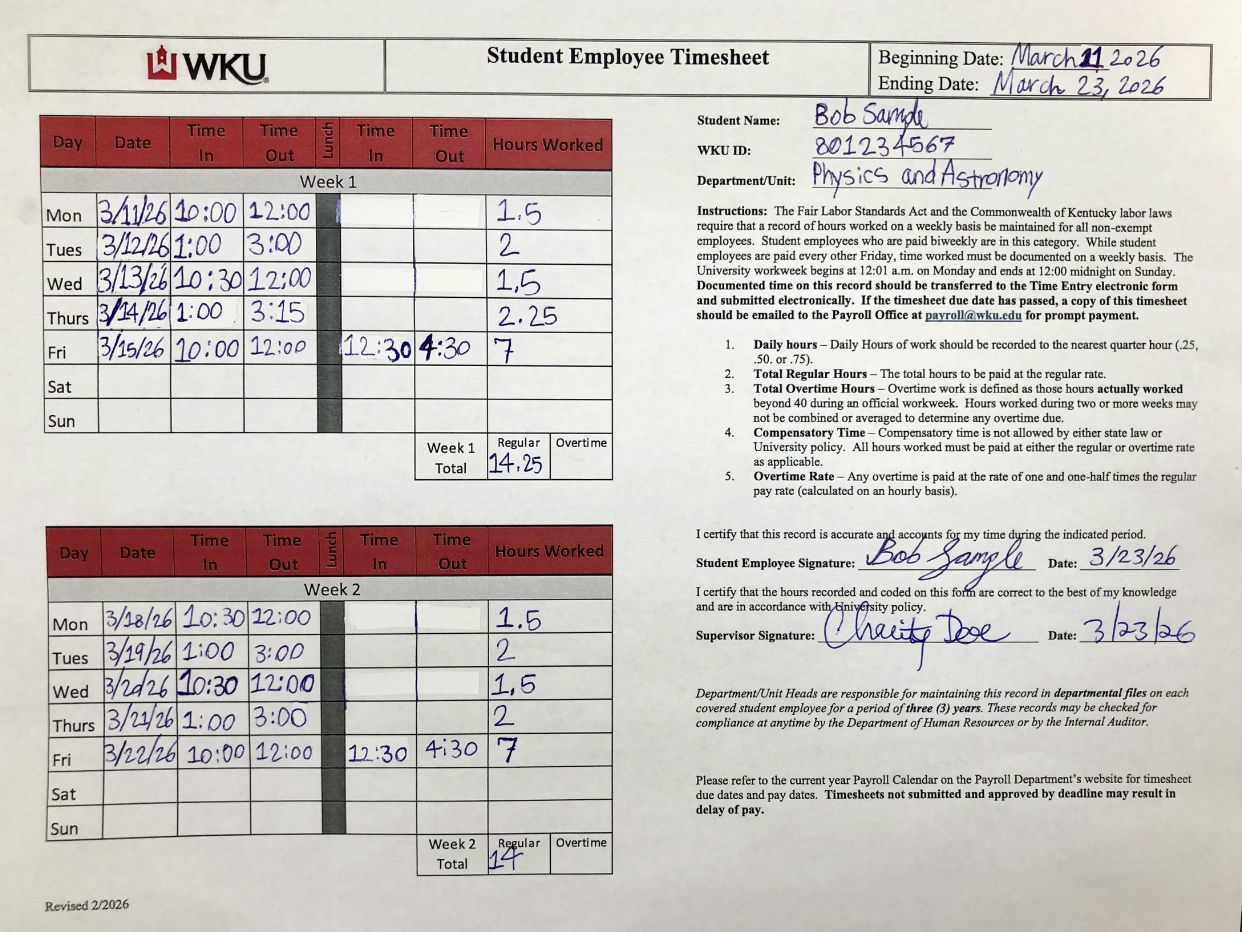 WKU
Student Employee Timesheet
Beginning Date: March 11 2026
Ending Date: March 23, 2026
Day Date Time In Time Out Lunch Time In Time Out Hours Worked
Week 1
Mon 3/11/26 10:00 12:00 1.5
Tues 3/12/26 1:00 3:00 2
Wed 3/13/26 10:30 12:00 1.5
Thurs 3/14/26 1:00 3:15 2.25
Fri 3/15/26 10:00 12:00 12:30 4:30 7
Sat
Sun
Week 1 Total Regular 14.25 Overtime
Day Date Time In Time Out Lunch Time In Time Out Hours Worked
Week 2
Mon 3/18/26 10:30 12:00 1.5
Tues 3/19/26 1:00 3:00 2
Wed 3/20/26 10:30 12:00 1.5
Thurs 3/21/26 1:00 3:00 2
Fri 3/22/26 10:00 12:00 12:30 4:30 7
Sat
Sun
Week 2 Total Regular 14 Overtime
Revised 2/2026
Student Name: Bob Sample
WKU ID: 801234567
Department/Unit: Physics and Astronomy
Instructions: The Fair Labor Standards Act and the Commonwealth of Kentucky labor laws
require that a record of hours worked on a weekly basis be maintained for all non-exempt
employees. Student employees who are paid biweekly are in this category. While student
employees are paid every other Friday, time worked must be documented on a weekly basis. The
University workweek begins at 12:01 a.m. on Monday and ends at 12:00 midnight on Sunday.
Documented time on this record should be transferred to the Time Entry electronic form
and submitted electronically. If the timesheet due date has passed, a copy of this timesheet
should be emailed to the Payroll Office at payroll@wku.edu for prompt payment.
1. Daily hours – Daily Hours of work should be recorded to the nearest quarter hour (.25,
.50. or .75).
2. Total Regular Hours – The total hours to be paid at the regular rate.
3. Total Overtime Hours – Overtime work is defined as those hours actually worked
beyond 40 during an official workweek. Hours worked during two or more weeks may
not be combined or averaged to determine any overtime due.
4. Compensatory Time – Compensatory time is not allowed by either state law or
University policy. All hours worked must be paid at either the regular or overtime rate
as applicable.
5. Overtime Rate – Any overtime is paid at the rate of one and one-half times the regular
pay rate (calculated on an hourly basis).
I certify that this record is accurate and accounts for my time during the indicated period.
Student Employee Signature: Bob Sample Date: 3/23/26
I certify that the hours recorded and coded on this form are correct to the best of my knowledge
and are in accordance with University policy.
Supervisor Signature: Charity Doe Date: 3/23/26
Department/Unit Heads are responsible for maintaining this record in departmental files on each
covered student employee for a period of three (3) years. These records may be checked for
compliance at anytime by the Department of Human Resources or by the Internal Auditor.
Please refer to the current year Payroll Calendar on the Payroll Department's website for timesheet
due dates and pay dates. Timesheets not submitted and approved by deadline may result in
delay of pay.